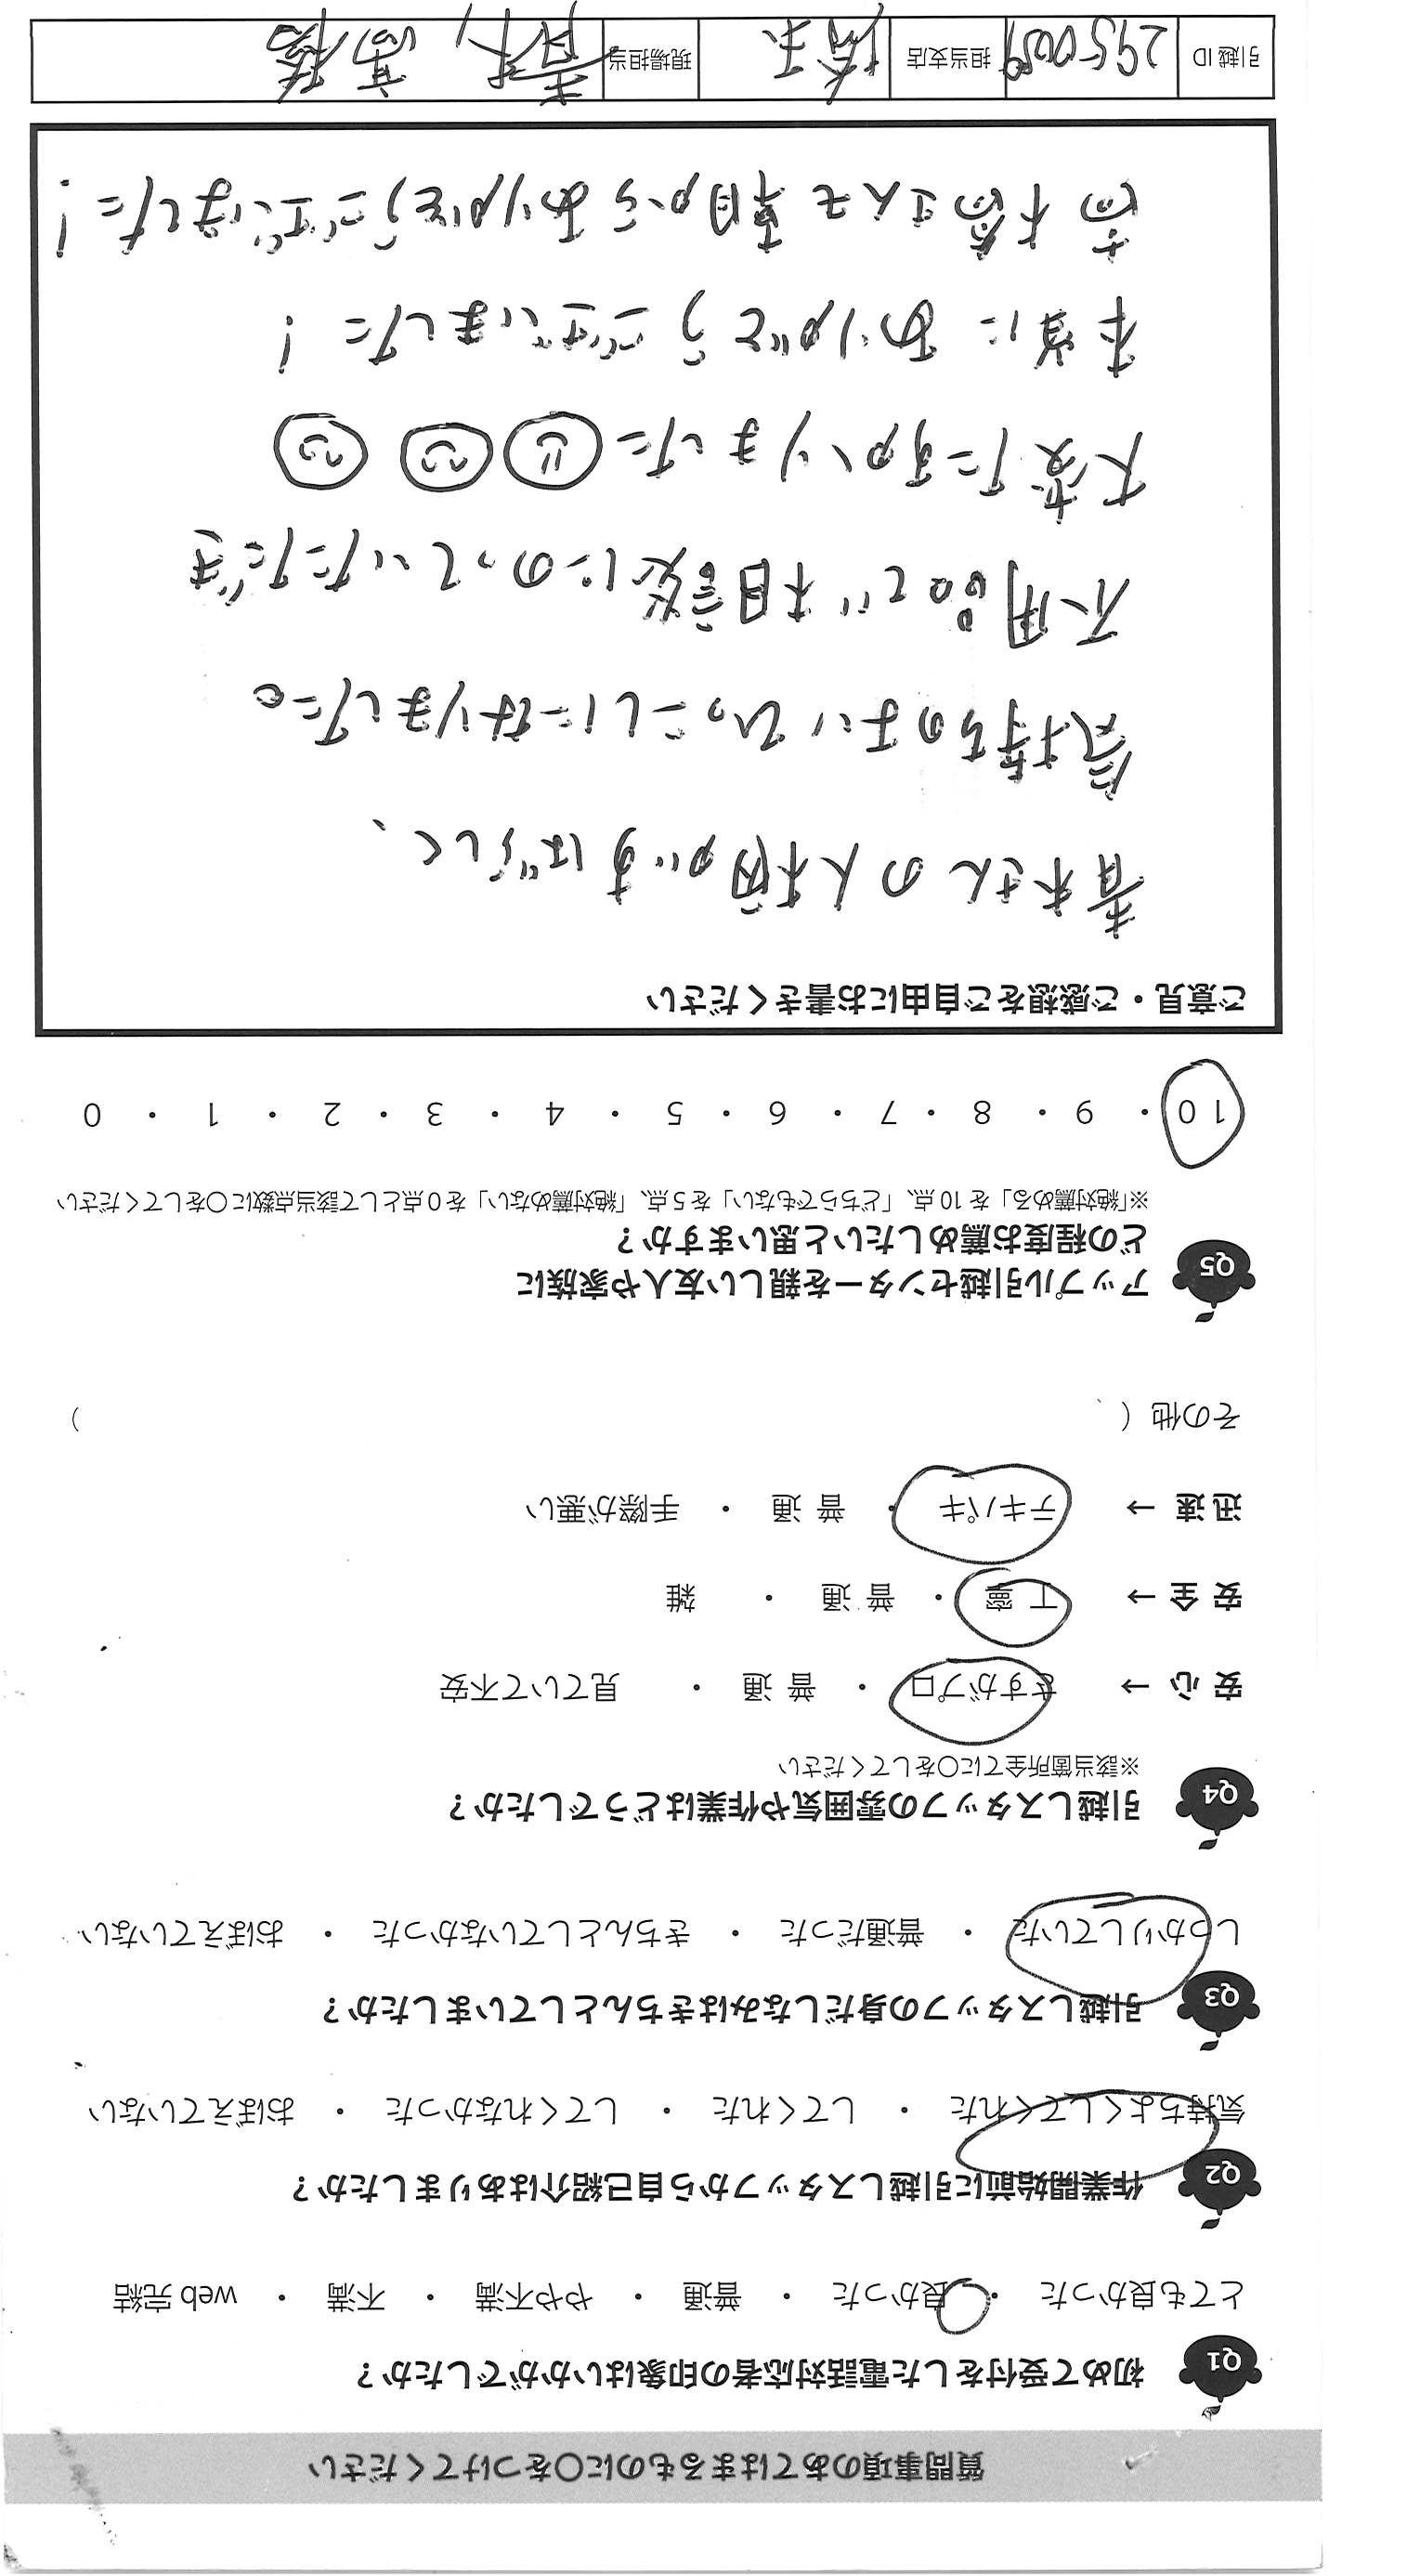 質問事項のあてはまるものに〇をつけてください
Q1 初めて受付をした電話対応者の印象はいかがでしたか？
とても良かった ・ 良かった ・ 普通 ・ やや不満 ・ 不満 ・ web 完結
Q2 作業開始前に引越しスタッフから自己紹介はありましたか？
気持ちよくしてくれた ・ してくれた ・ してくれなかった ・ おぼえていない
Q3 引越しスタッフの身だしなみはきちんとしていましたか？
しっかりしていた ・ 普通だった ・ きちんとしていなかった ・ おぼえていない
Q4 引越しスタッフの雰囲気や作業はどうでしたか？
※該当箇所全てに〇をしてください
安 心 → さすがプロ ・ 普 通 ・ 見ていて不安
安 全 → 丁 寧 ・ 普 通 ・ 雑
迅 速 → テキパキ ・ 普 通 ・ 手際が悪い
その他（ ）
Q5 アップル引越センターを親しい友人や家族に
どの程度お薦めしたいと思いますか？
※「絶対薦める」を 10 点、「どちらでもない」を 5 点、「絶対薦めない」を 0 点として該当点数に〇をしてください
10 ・ 9 ・ 8 ・ 7 ・ 6 ・ 5 ・ 4 ・ 3 ・ 2 ・ 1 ・ 0
ご意見・ご感想をご自由にお書きください
青木さんの人柄がすばらしく、
気持ちのよいひっこしに なりました。
不用品で相談にのっていただき
大変たすかりました
本当に ありがとうございました！
高橋さんも 朝から ありがとうございました！
引越 ID 2950059 担当支店 埼玉 現場担当 青木, 高橋